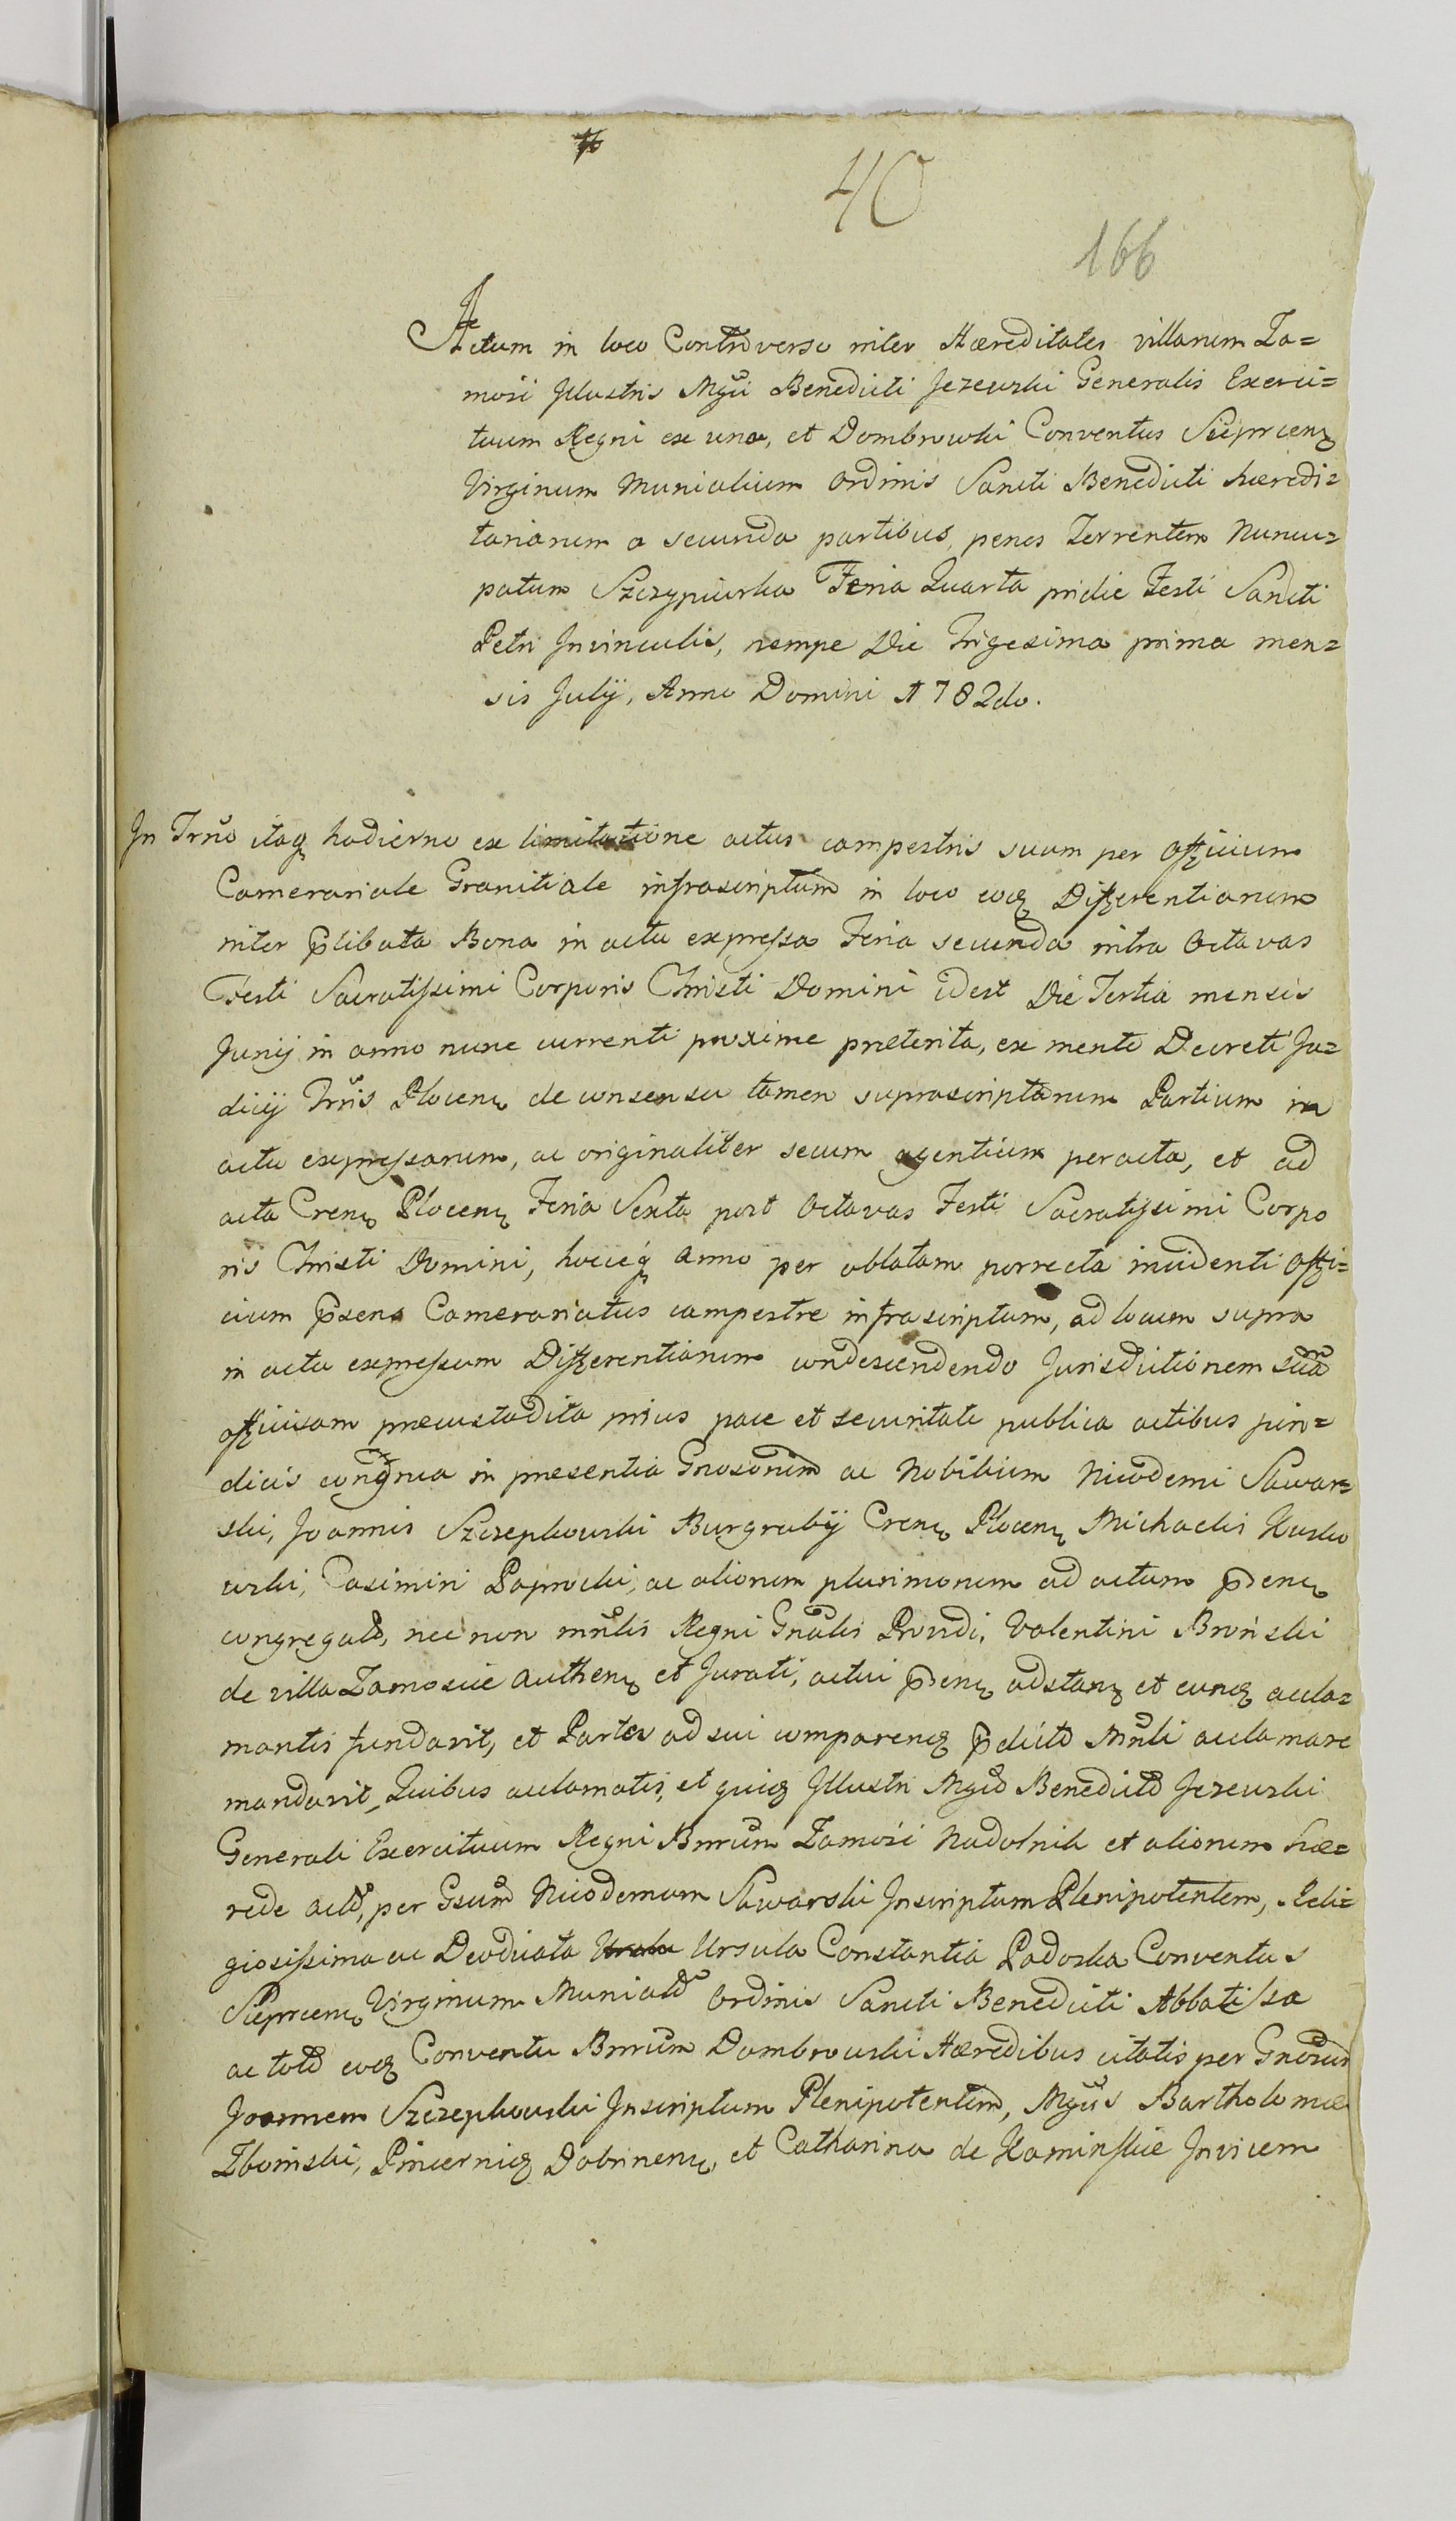 40
166
Actum in loco Controverso inter Hæreditates villarum Za=
mosci Jllustris Mgci Benedicti Jezewski Generalis Exerci=
tuum Regni ex una, et Dombrowski Conventus Sieprcens
Virginum Monialium Ordinis Sancti Benedicti hæredi=
tariarum a secunda partibus, penes Torrentem Nuncu=
patum Szczypiurka Feria Quarta pridie Festi Sancti
Petri Jnvinculis, nempe Die Trigesima prima men=
sis Julij, Anno Domini 1782do.
Jn Trno itaq hodierno ex limitatione actus campestris suum per officium
Camerariale Granitiale infrascriptum in loco eoq Differentiarum
inter plibata Bona in actu expressa Feria secunda intra Octavas
Festi Sacratissimi Corporis Christi Domini idest Die Tertia mensis
Junij in anno nunc currenti proxime præterita, ex mente Decreti Ju=
dicij Trris Plocens de consensu tamen suprascriptarum Partium in
actu expressarum, ac originaliter secum agentium peracta, et ad
acta Crens Plocens Feria Sexta post Octavas Festi Sacratissimi Corpo
ris Christi Domini, hocceq anno per oblatam porrecta incidenti Offi=
cium psens Camerariatus campestre infrascriptum, ad locum supra
in actu expressum Differentiarum condescendendo Jurisdictionem suam
officiosam præcustodita prius pace et securitate publica actibus juri=
dicis congrua in presentia Gnosorum ac Nobilium Nicodemi Skwar=
ski, Joannis Szczepkowski Burgrabij Crens Plocens Michaelis Kusko
wski, Casimiri Paprocki, ac aliorum plurimorum ad actum psens
congregato, nec non mnlis Regni Gnalis Providi, Valentini Bronski
de villa Zamoscie authens et Jurati, actui psens adstans et eunq accla=
mantis fundavit, et Partes ad sui comparens pdicto Mnli acclamare
mandavit, Quibus acclamatis, et quiq Jllustri Mgco Benedicto Jezewski
Generali Exercituum Regni Bnrum Zamosci Nadolnik et aliorum hæ=
rede acto, per Gsum Nicodemum Skwarski Jnscriptum Plenipotentem, Reli=
giosissima ac Deodicata Ursula Constantia Padoska Conventus
Sieprcens Virginum Moniato Ordinis Sancti Benedicti Abbatissa
ac toto eoq Conventu Bnrum Dombrowski Hæredibus citatis per Gnosum
Joannem Szczepkowski Jnscriptum Plenipotentem, Mgcis Bartholomæo
Zboinski, Pincerniq Dobrinens, et Catharina de Kaminskie Jnvicem